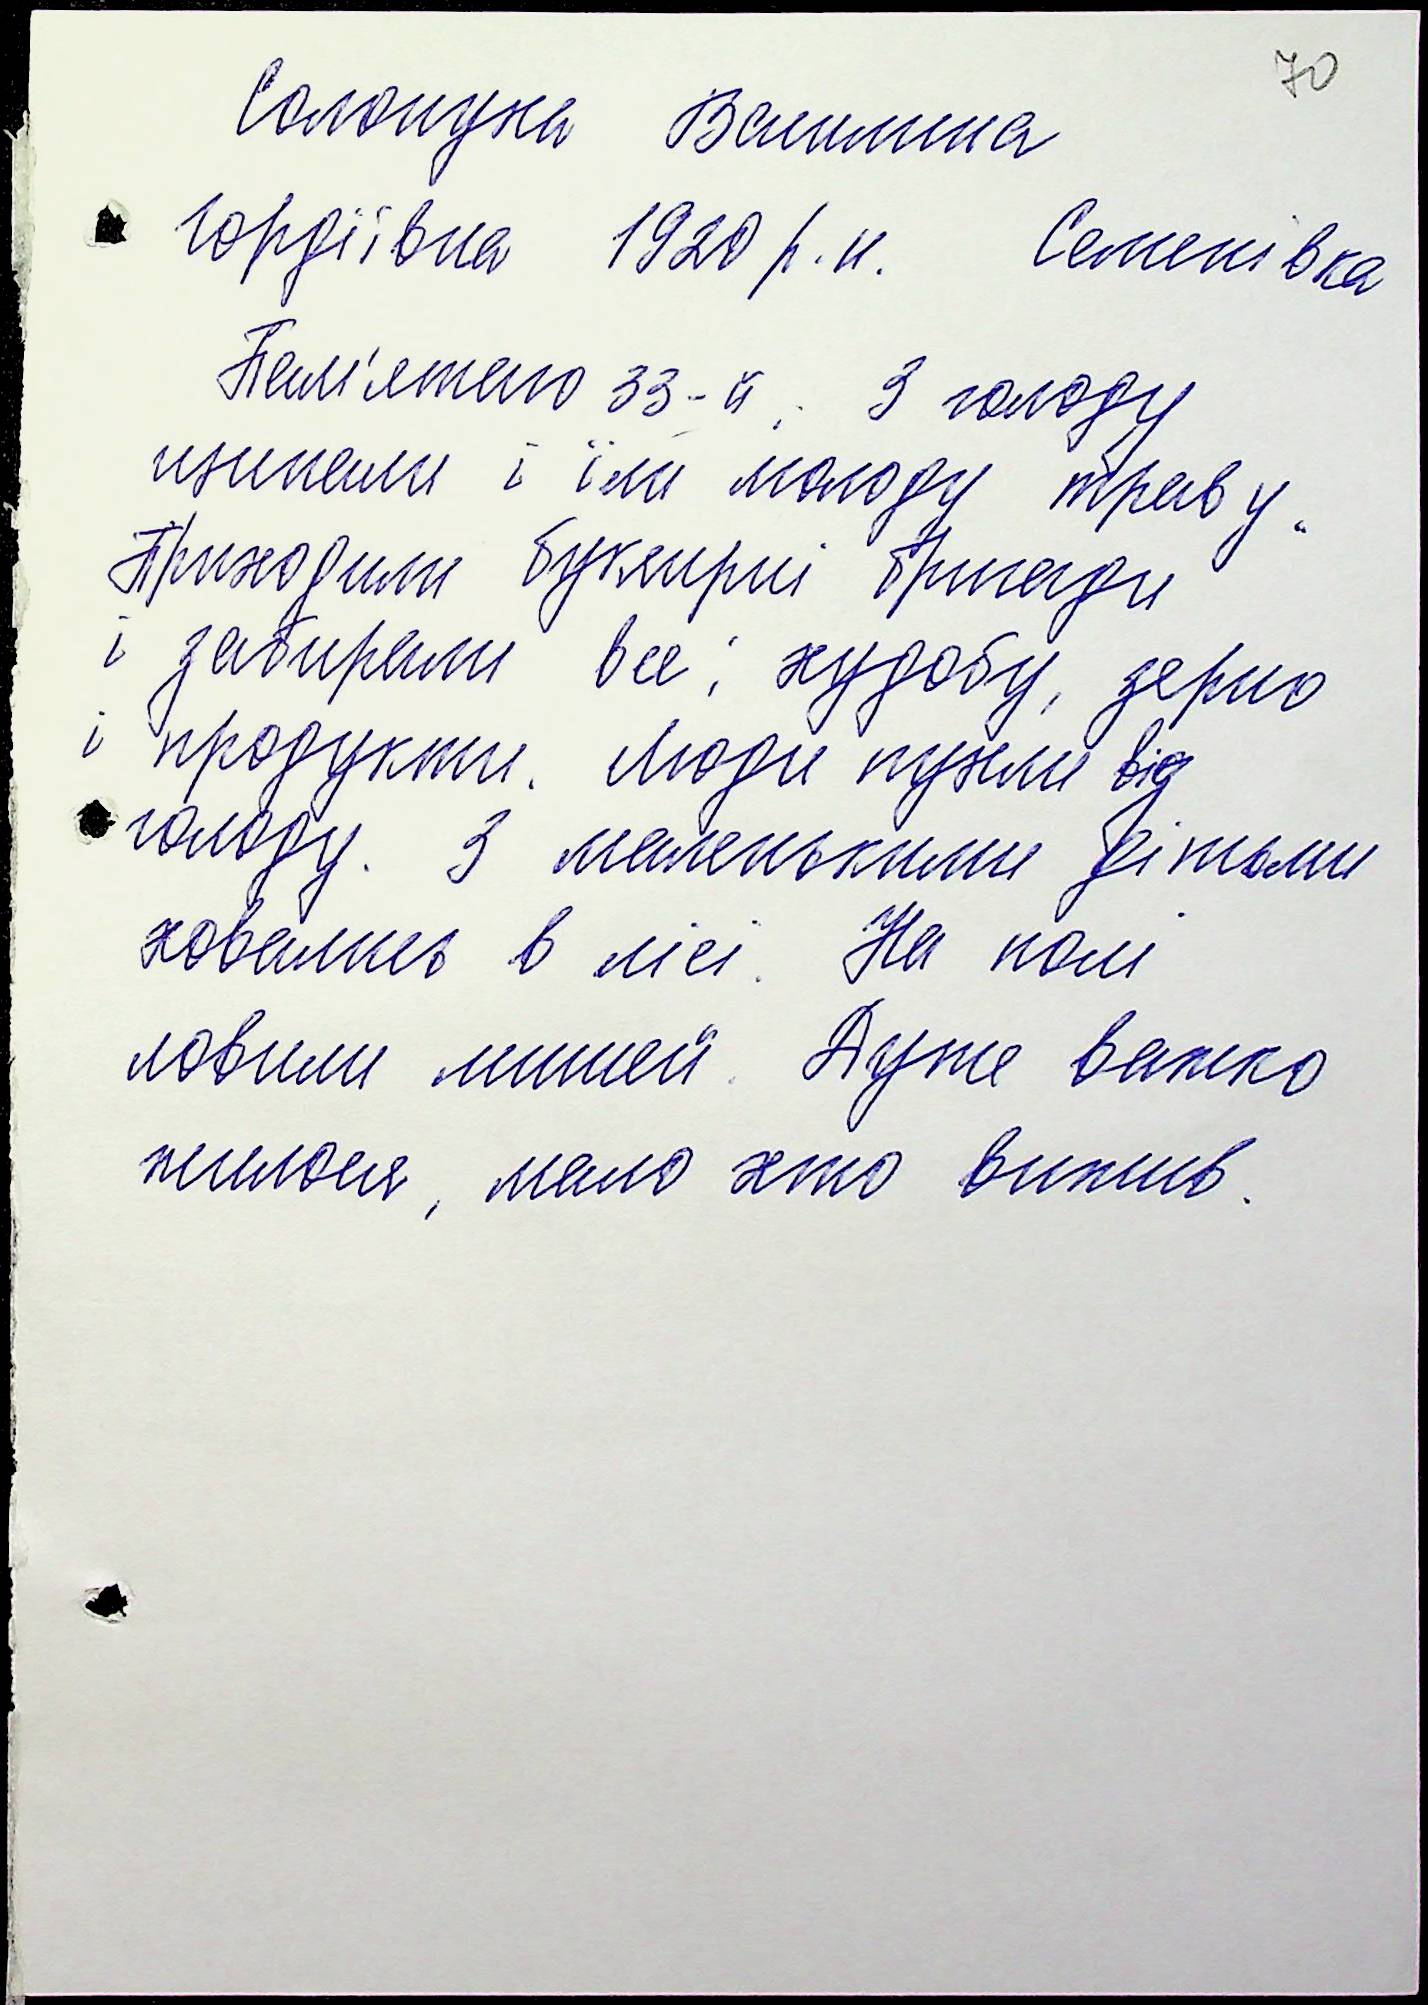 70
Солопуха Василина
Гордіївна 1920 р.н. Семенівка
Пам'ятаю 33-й. З голоду
щипали і їли молоду траву.
Приходили буксирні бригади
і забирали все: худобу, зерно
і продукти. Люди пухли від
голоду. З маленькими дітьми
ховались в лісі. На полі
ловили мишей. Дуже важко
жилося, мало хто вижив.